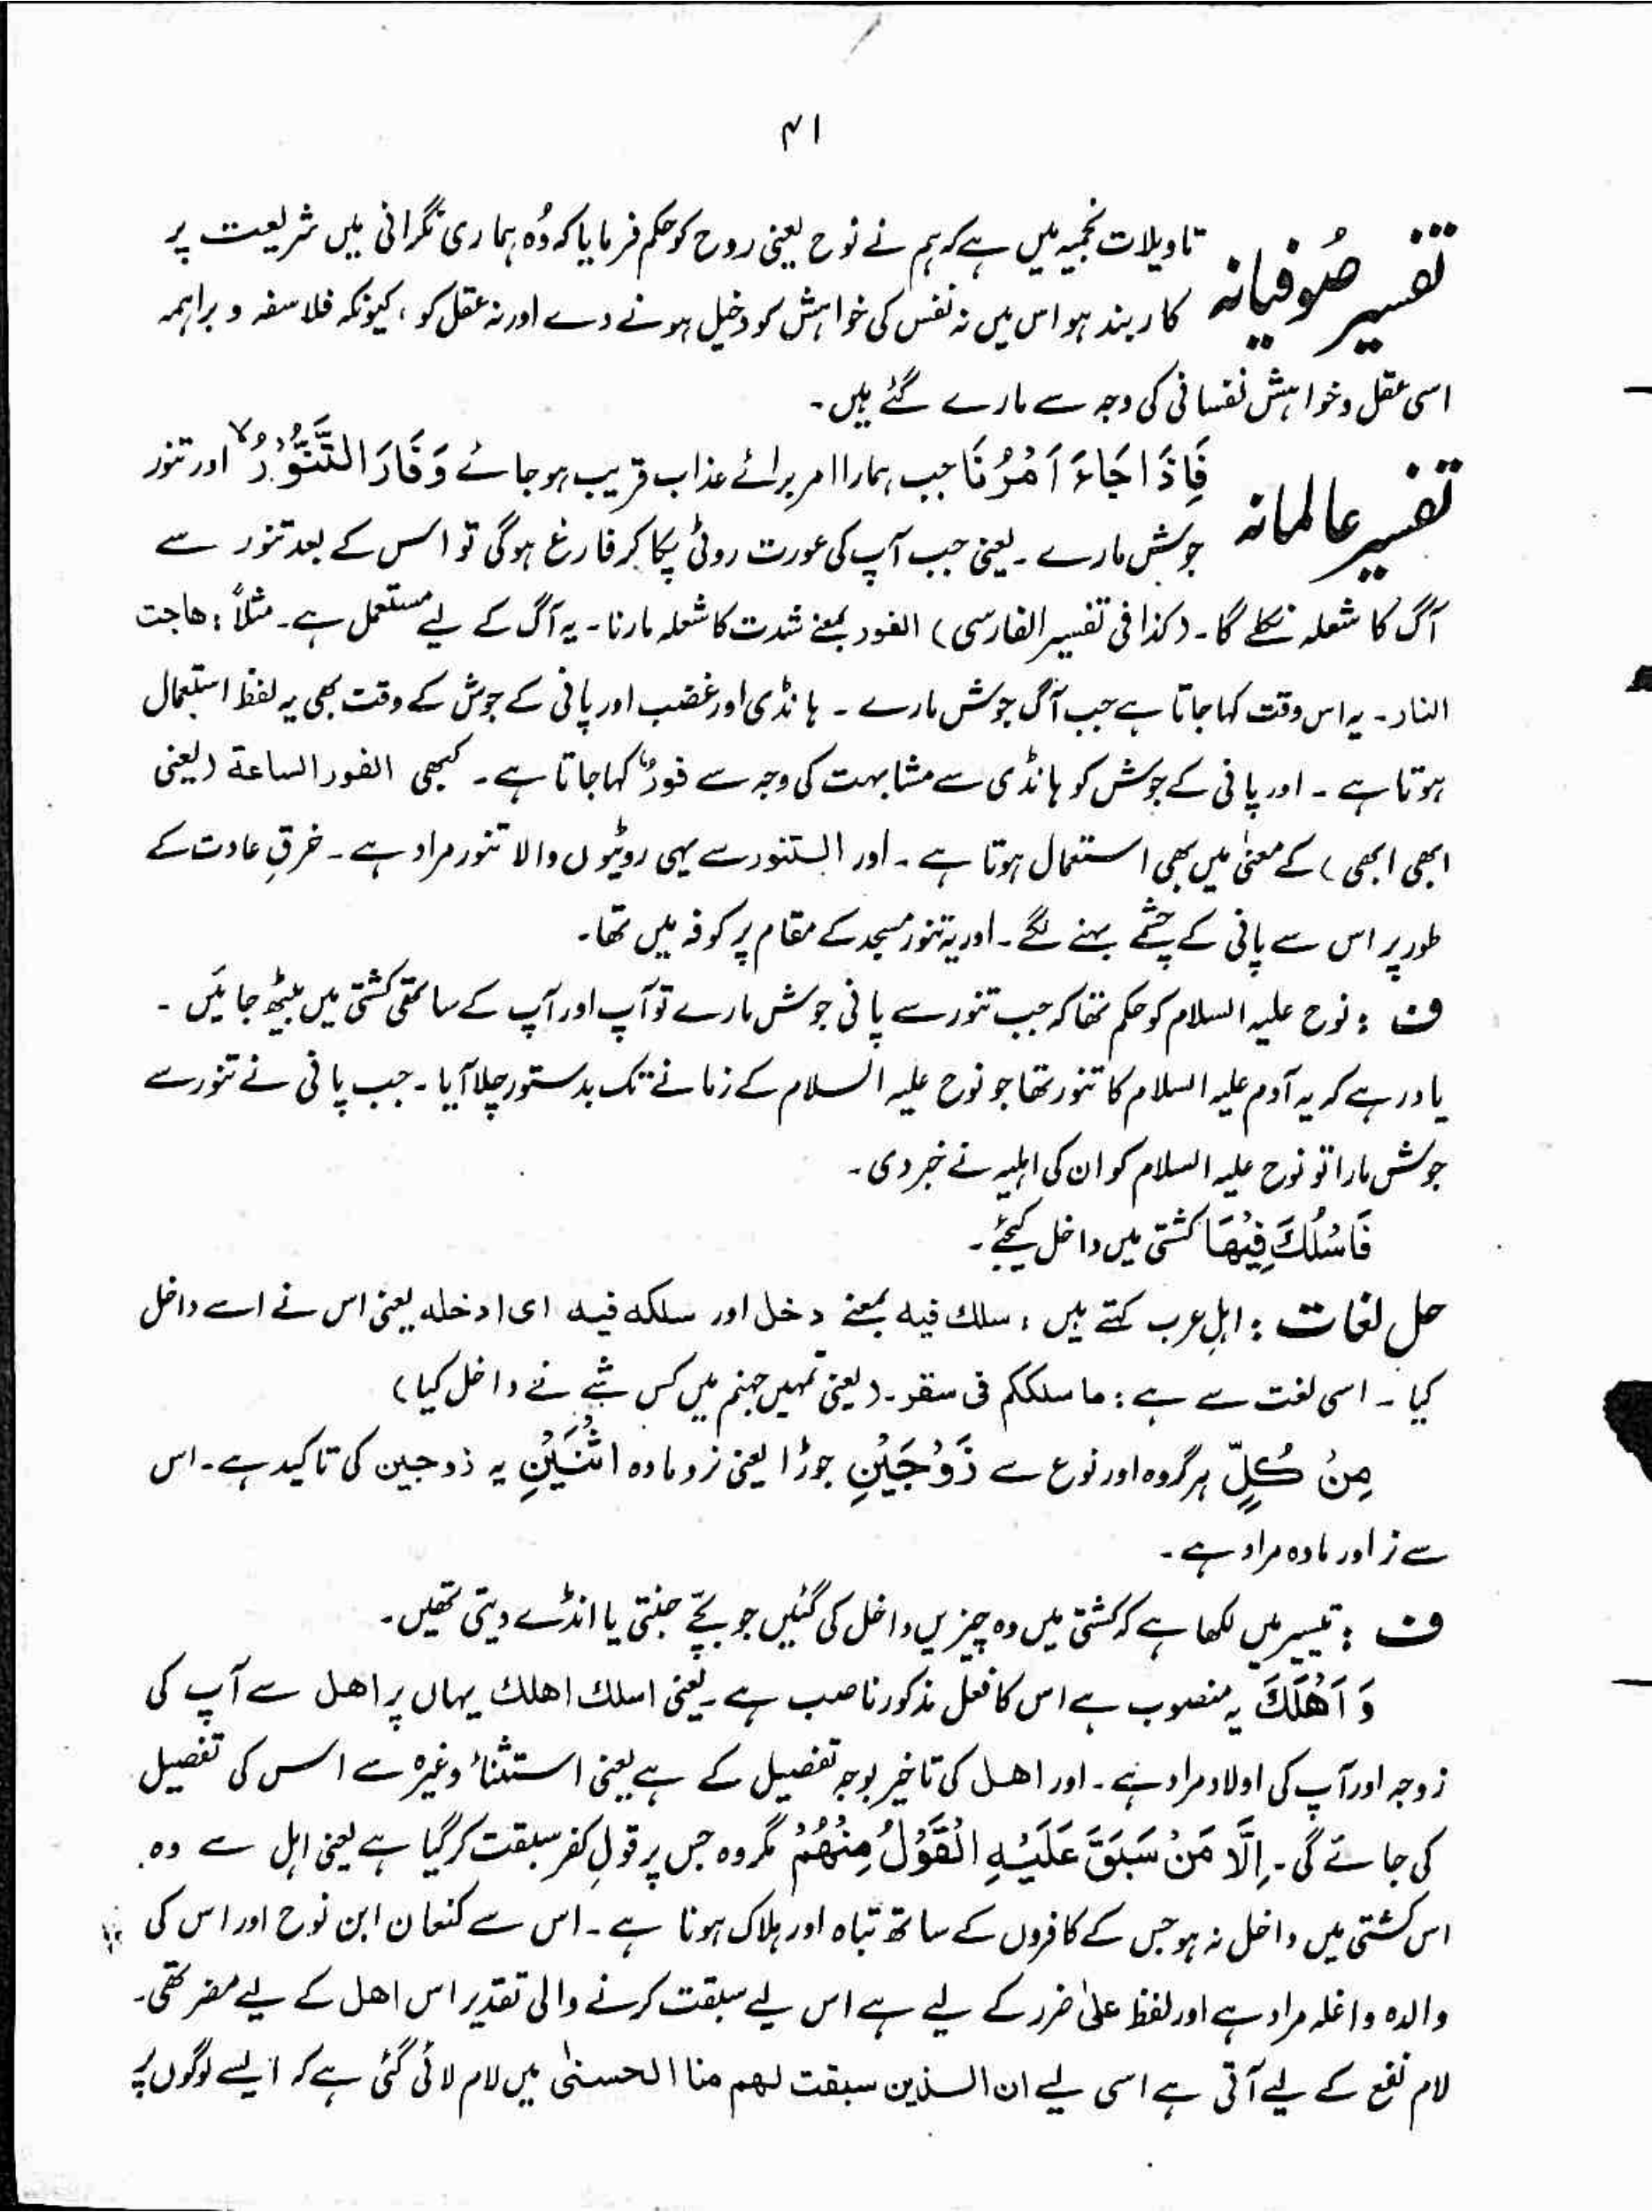 ۴۱
تفسیر صُوفیانہ تاویلات نجمیہ میں ہے کہ ہم نے نوح یعنی روح کو حکم فرمایا کہ وُہ ہماری نگرانی میں شریعت پر
کاربند ہو اس میں نہ نفس کی خواہش کو دخیل ہونے دے اور نہ عقل کو، کیونکہ فلاسفہ و براہمہ
اسی عقل و خواہش نفسانی کی وجہ سے مارے گئے ہیں۔
تفسیر عالمانہ فَاِذَا جَاءَ اَمْرُنَا جب ہمارا امر برائے عذاب قریب ہو جائے وَفَارَ التَّنُّوْرُ ۙ اور تنور
جوش مارے۔ یعنی جب آپ کی عورت روٹی پکا کر فارغ ہوگی تو اس کے بعد تنور سے
آگ کا شعلہ نکلے گا۔ (کذا فی تفسیر الفارسی) الفور بمعنے شدت کا شعلہ مارنا۔ یہ آگ کے لیے مستعمل ہے۔ مثلاً: ھاجت
النار۔ یہ اس وقت کہا جاتا ہے جب آگ جوش مارے۔ ہانڈی اور غضب اور پانی کے جوش کے وقت بھی یہ لفظ استعمال
ہوتا ہے۔ اور پانی کے جوش کو ہانڈی سے مشابہت کی وجہ سے فورٌ کہا جاتا ہے۔ کبھی الفور الساعة (یعنی
ابھی ابھی) کے معنیٰ میں بھی استعمال ہوتا ہے۔ اور التنور سے یہی روٹیوں والا تنور مراد ہے۔ خرقِ عادت کے
طور پر اس سے پانی کے چشمے بہنے لگے۔ اور یہ تنور مسجد کے مقام پر کوفہ میں تھا۔
ف : نوح علیہ السلام کو حکم تھا کہ جب تنور سے پانی جوش مارے تو آپ اور آپ کے ساتھی کشتی میں بیٹھ جائیں۔
یاد رہے کہ یہ آدم علیہ السلام کا تنور تھا جو نوح علیہ السلام کے زمانے تک بدستور چلا آیا۔ جب پانی نے تنور سے
جوش مارا تو نوح علیہ السلام کو ان کی اہلیہ نے خبر دی۔
فَاسْلُكْ فِيْهَا کشتی میں داخل کیجئے۔
حل لغات : اہلِ عرب کہتے ہیں : سلك فیه بمعنے دخل اور سلکه فیه ای ادخله یعنی اس نے اسے داخل
کیا۔ اسی لغت سے ہے : ما سلککم فی سقر۔ (یعنی تمہیں جہنم میں کس شے نے داخل کیا)
مِنْ كُلٍّ ہر گروہ اور نوع سے زَوْجَيْنِ جوڑا یعنی نر و مادہ اثْنَيْنِ یہ زوجین کی تاکید ہے۔ اس
سے نر اور مادہ مراد ہے۔
ف : تیسیر میں لکھا ہے کہ کشتی میں وہ چیزیں داخل کی گئیں جو بچّے جنتی یا انڈے دیتی تھیں۔
وَ اَهْلَكَ یہ منصوب ہے اس کا فعل مذکور ناصب ہے۔ یعنی اسلك اهلك یہاں پر اھل سے آپ کی
زوجہ اور آپ کی اولاد مراد ہے۔ اور اھل کی تاخیر بوجہ تفصیل کے ہے یعنی استثناء وغیرہ سے اس کی تفصیل
کی جائے گی۔ اِلَّا مَنْ سَبَقَ عَلَيْهِ الْقَوْلُ مِنْهُمْ مگر وہ جس پر قولِ کفر سبقت کر گیا ہے یعنی اہل سے وہ
اس کشتی میں داخل نہ ہو جس کے کافروں کے ساتھ تباہ اور ہلاک ہونا ہے۔ اس سے کنعان ابن نوح اور اس کی
والدہ واغلہ مراد ہے اور لفظ علیٰ ضرر کے لیے ہے اس لیے سبقت کرنے والی تقدیر اس اھل کے لیے مضر تھی۔
لام نفع کے لیے آتی ہے اسی لیے ان الذین سبقت لهم منا الحسنیٰ میں لام لائی گئی ہے کہ ایسے لوگوں پر